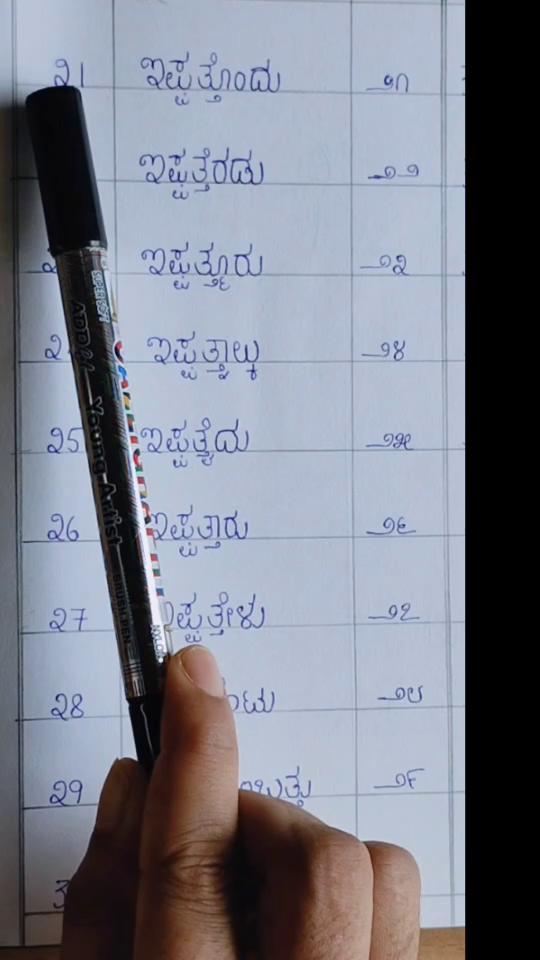 21 ಇಪ್ಪತ್ತೊಂದು ೨೧
ಇಪ್ಪತ್ತೆರಡು ೨೨
ಇಪ್ಪತ್ತ್ಮೂರು ೨೩
2 ಇಪ್ಪತ್ನಾಲ್ಕು ೨೪
25 ಇಪ್ಪತ್ತೈದು ೨೫
26 ಇಪ್ಪತ್ತಾರು ೨೬
27 ಇಪ್ಪತ್ತೇಳು ೨೭
28 ೨೮
29 ೨೯
Young Artist